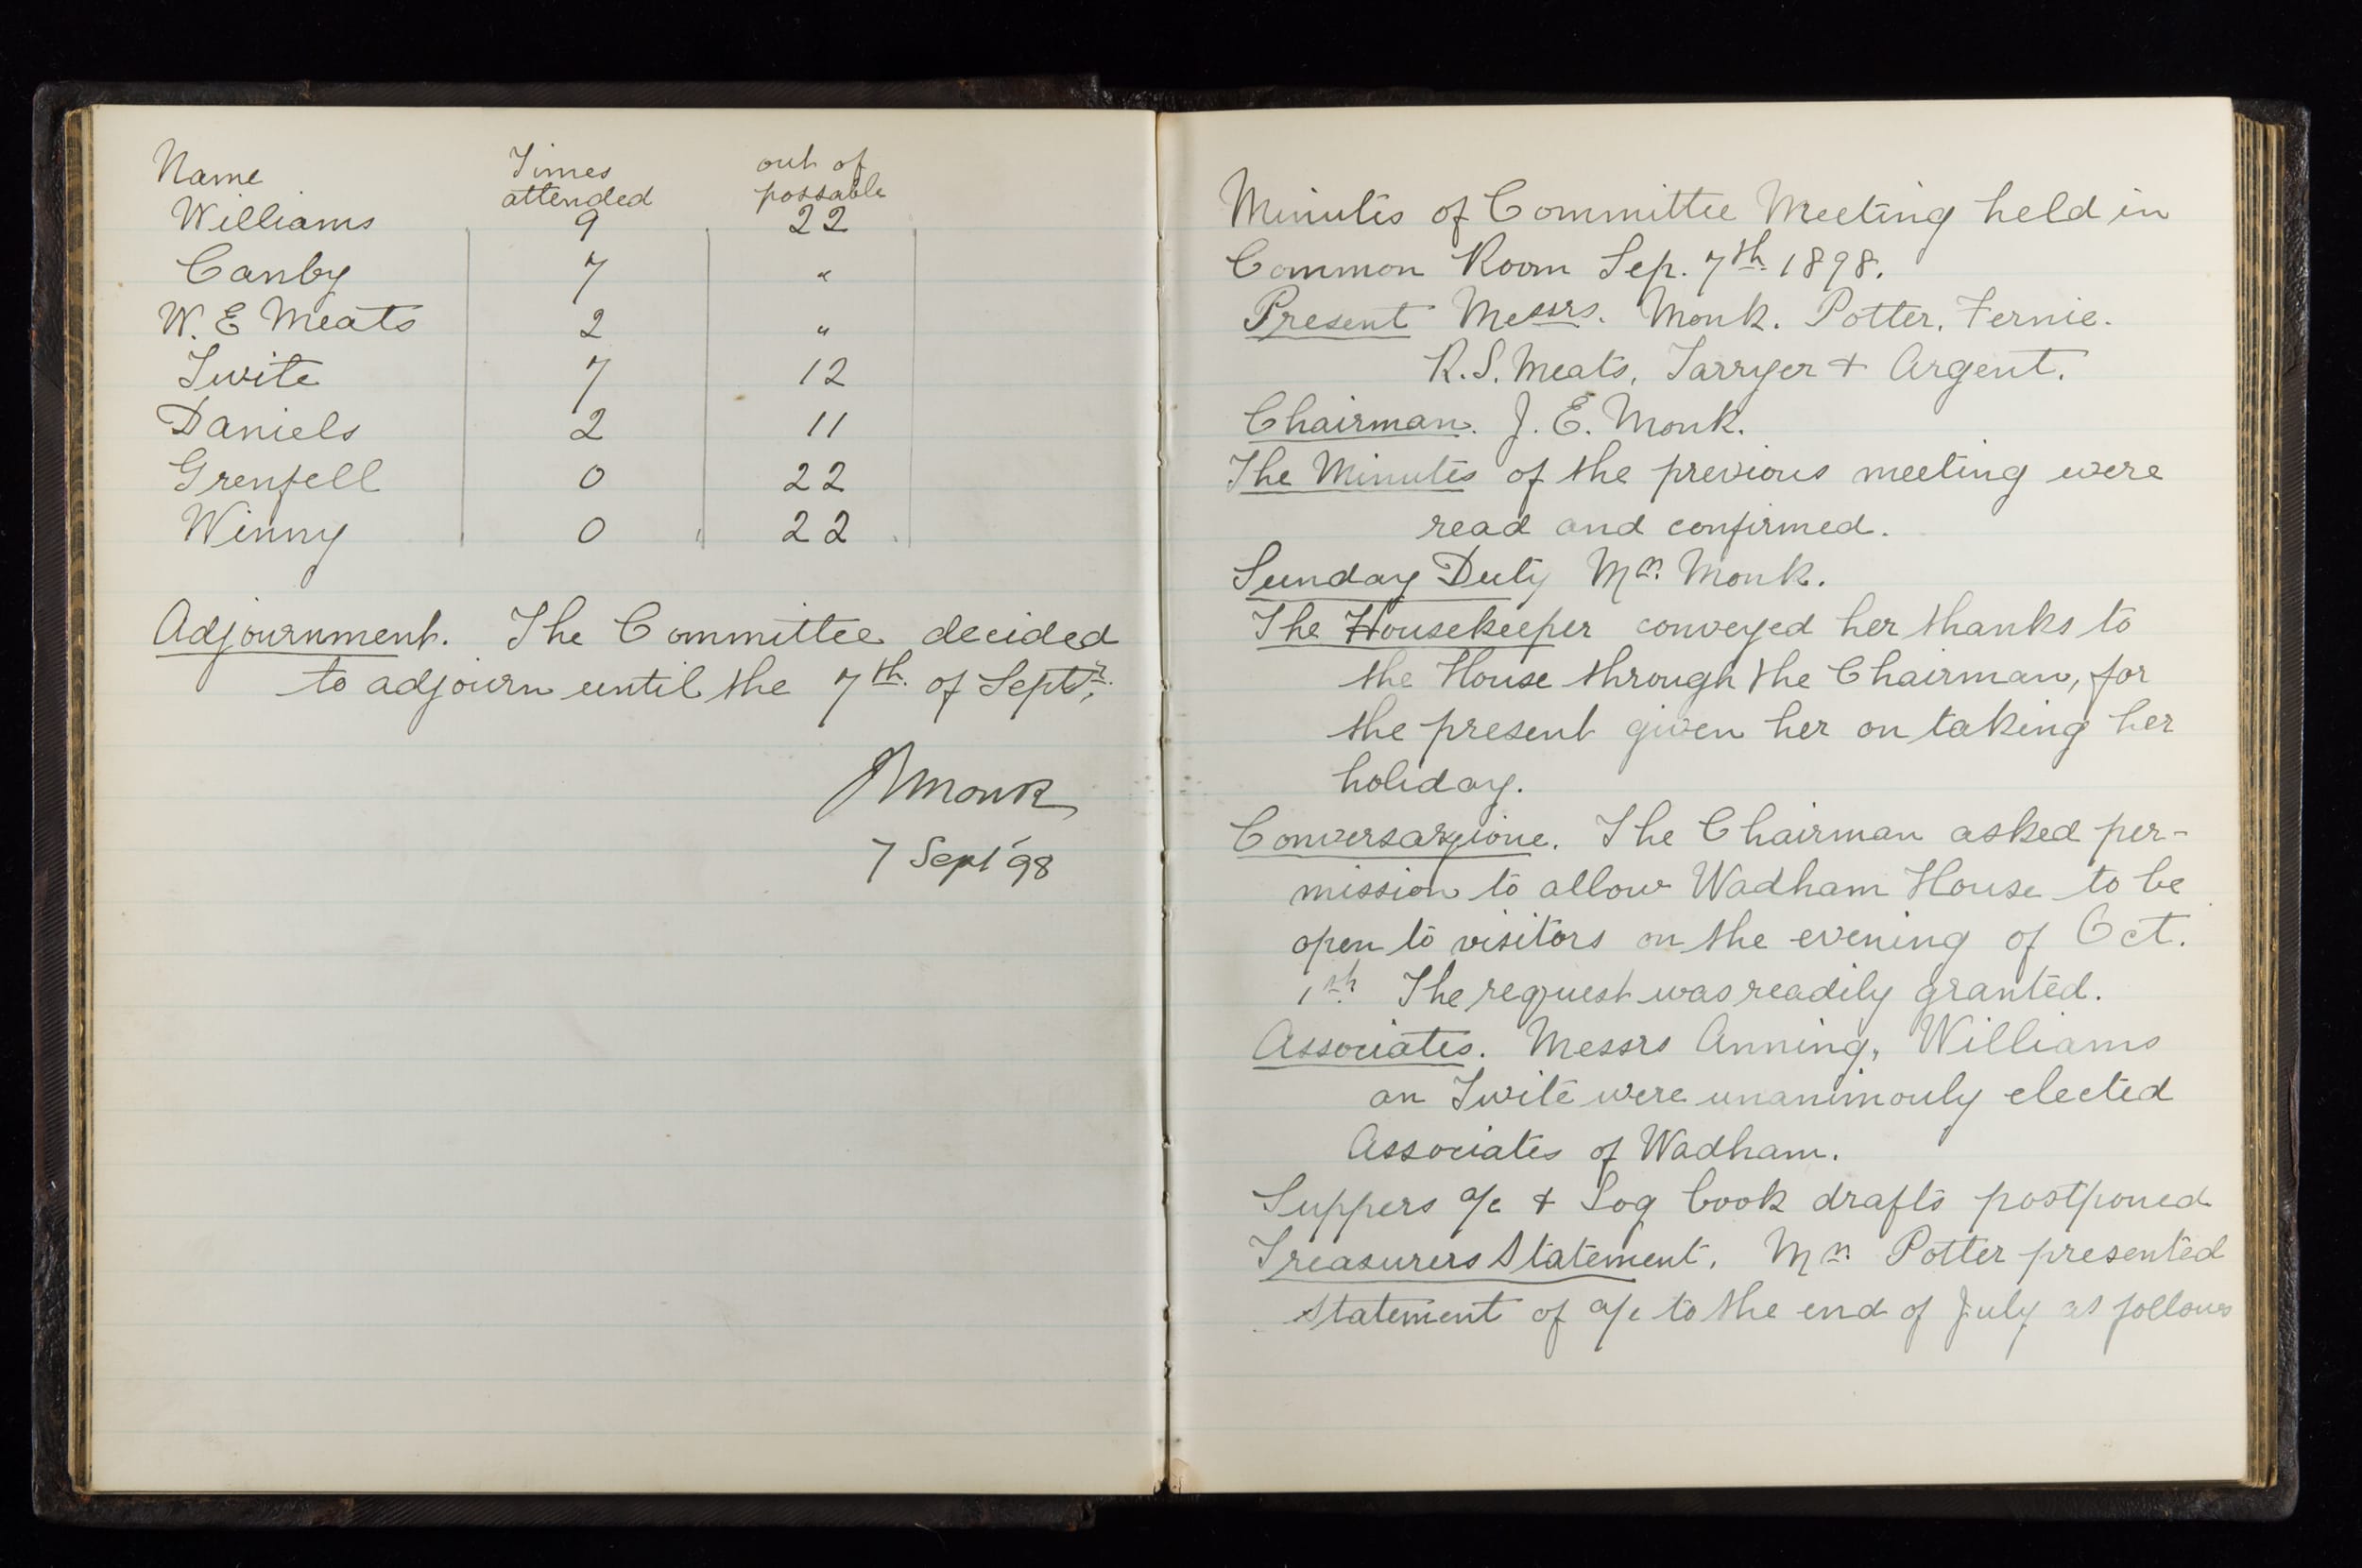 Name Times attended out of possable
Williams 9 22
Canby 7 "
W. E Meats 2 "
Twite 7 12
Daniels 2 11
Grenfell 0 22
Winny 0 22
Adjournment. The Committee decided
to adjourn until the 7th. of Septr.
JEMonk
7 Sept '98
Minutes of Committee Meeting held in
Common Room Sep. 7th. 1898.
Present Messrs. Monk. Potter. Fernie.
R. S. Meats, Tarryer + Argent.
Chairman. J. E. Monk.
The Minutes of the previous meeting were
read and confirmed.
Sunday Duty Mr. Monk.
The Housekeeper conveyed her thanks to
the House through the Chairman, for
the present given her on taking her
holiday.
Conversazione. The Chairman asked per-
mission to allow Wadham House to be
open to visitors on the evening of Oct.
1st. The request was readily granted.
Associates. Messrs Anning, Williams
an Twite were unanimouly elected
Associates of Wadham.
Suppers a/c + Log book drafts postponed
Treasurers Statement. Mr. Potter presented
statement of a/c to the end of July as follows